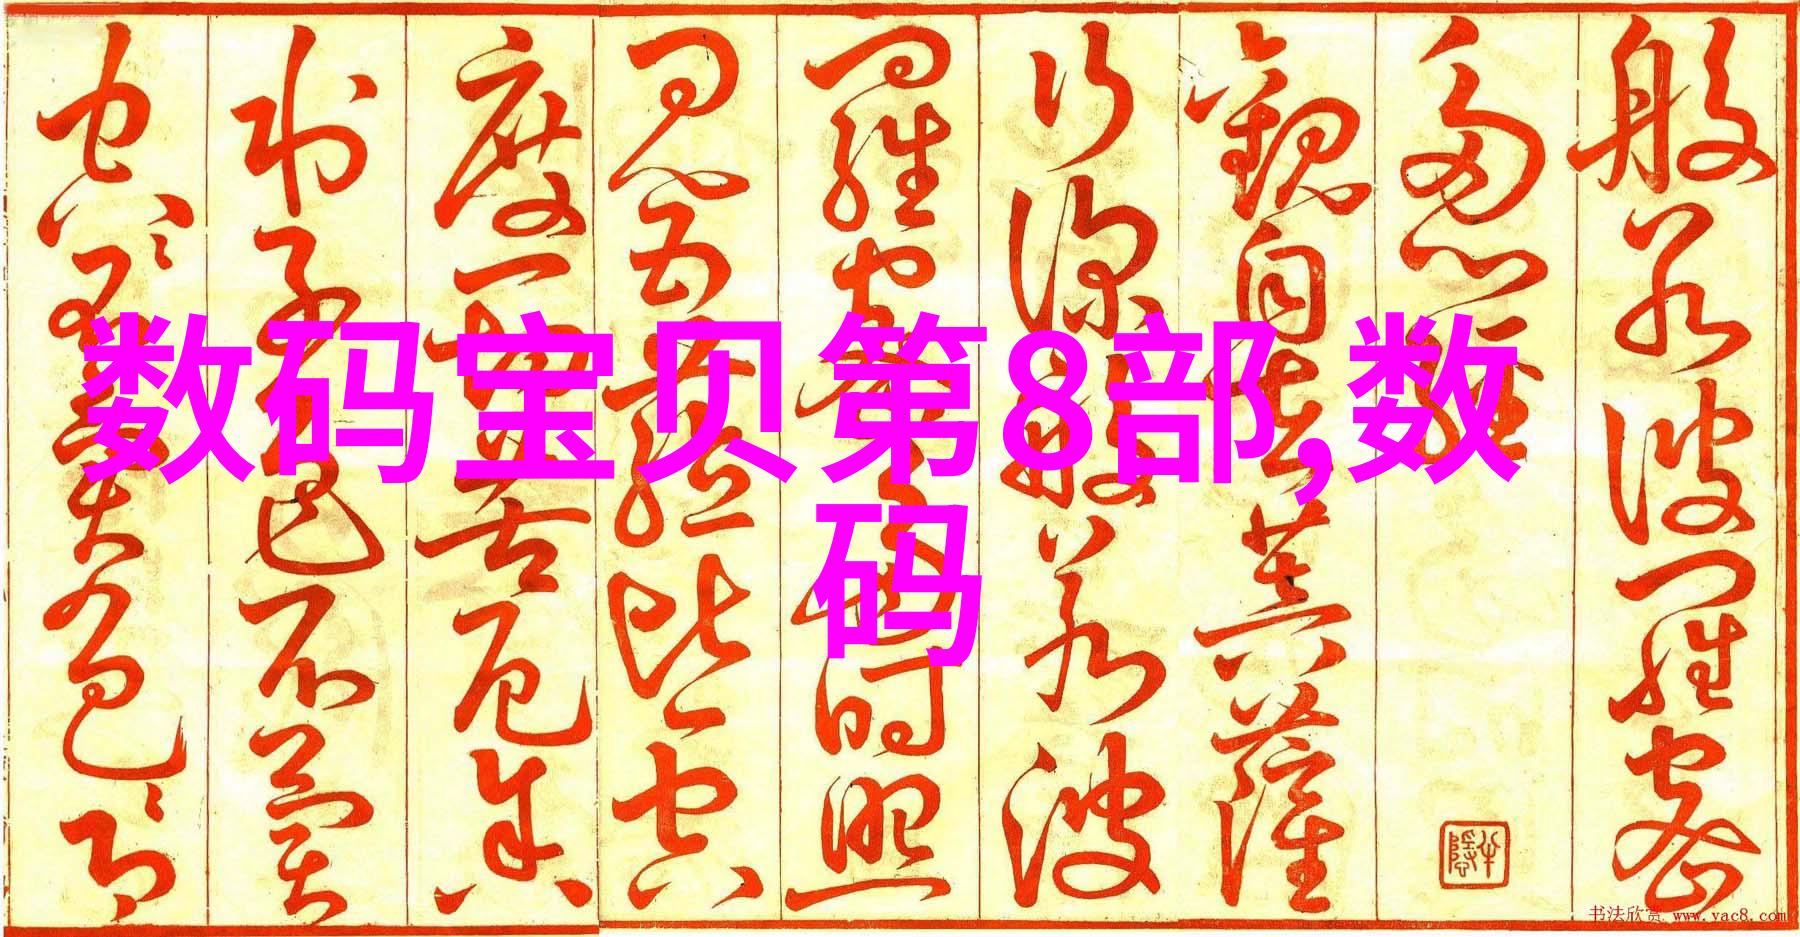 般若波羅蜜
多心經
觀自在菩薩
行深般若波
羅蜜多時照
見五蘊皆空
度一切苦厄舍
利子色不異
空〻不異色〻即
数码宝贝第8部,数
码
书法欣赏 www.yac8.com